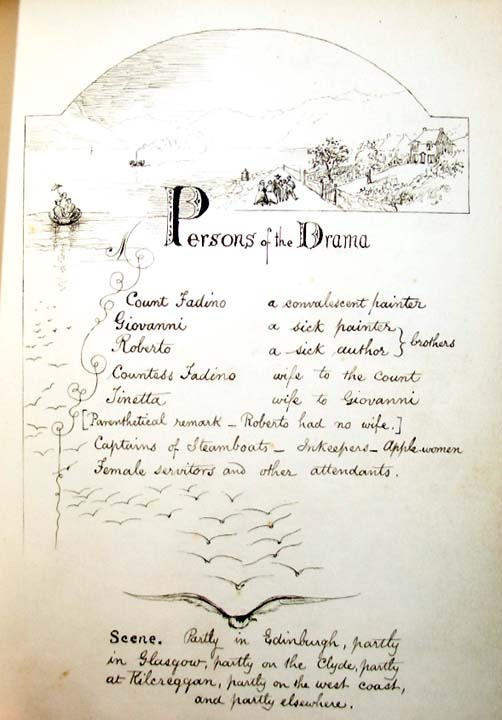 Persons of the Drama
Count Fadino a convalescent painter
Giovanni a sick painter
Roberto a sick author } brothers
Countess Fadino wife to the Count
Tinetta wife to Giovanni
[Parenthetical remark – Roberto had no wife.]
Captains of Steamboats – Inkeepers – Apple-women
Female servitors and other attendants.
Scene. Partly in Edinburgh, partly
in Glasgow, partly on the Clyde, partly
at Kilcreggan, partly on the west coast,
and partly elsewhere.